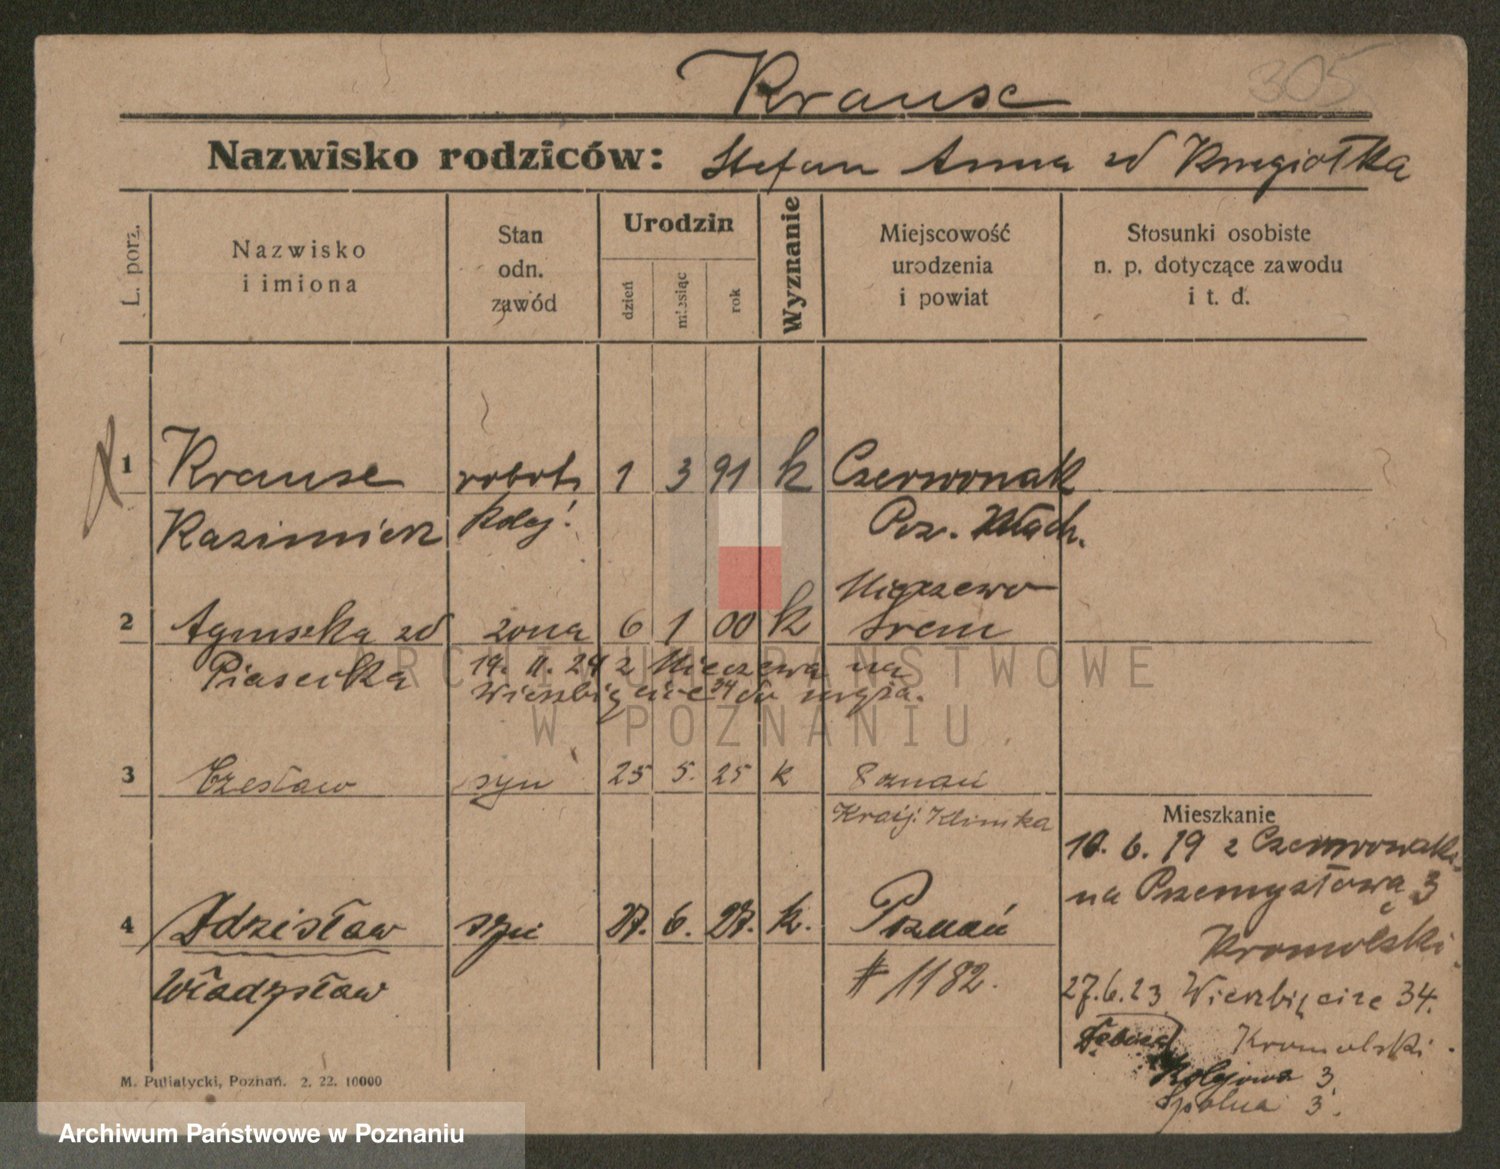 305
Krause
Nazwisko rodziców: Stefan Anna zd
L. porz.
Nazwisko i imiona
Stan odn. zawód
Urodzin
dzień
miesiąc
rok
Wyznanie
Miejscowość urodzenia i powiat
Stosunki osobiste n. p. dotyczące zawodu i t. d.
1 Krause robot. 1 3 91 k Czerwonak
Kazimierz kolej. Poz. Wsch.
2 Agnieszka zd żona 6 1 00 k Śrem
Piasecka 19. II. 24 z na
Wierzbięcice do męża.
3 Czesław syn 25 5. 25 k Poznań
Kraj. Klinika
4 Zdzisław syn 27. 6. 27. k. Poznań
Władysław # 1182.
Mieszkanie
10. 6. 19 z Czerwonaka
na Przemysłową 3
Kromolski.
27.6.23 Wierzbięcice 34.
Dębiec Kromolski.
Kolejowa 3
Spólna 3.
M. Putiatycki, Poznań. 2. 22. 10000
ARCHIWUM PAŃSTWOWE
W POZNANIU
Archiwum Państwowe w Poznaniu